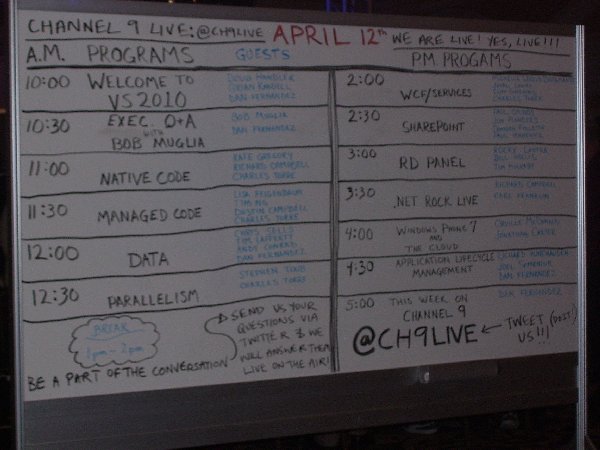 CHANNEL 9 LIVE: @CH9LIVE APRIL 12th WE ARE LIVE! YES, LIVE!!!
A.M. PROGRAMS GUESTS
10:00 WELCOME TO VS2010
DOUG HANDLER
BRIAN RANDELL
DAN FERNANDEZ
10:30 EXEC. Q+A WITH BOB MUGLIA
BOB MUGLIA
DAN FERNANDEZ
11:00 NATIVE CODE
KATE GREGORY
RICHARD CAMPBELL
CHARLES TORRE
11:30 MANAGED CODE
LISA FEIGENBAUM
TIM NG
DUSTIN CAMPBELL
CHARLES TORRE
12:00 DATA
CHRIS SELLS
TIM LAVERTY
ANDY CONRAD
DAN FERNANDEZ
12:30 PARALLELISM
STEPHEN TOUB
CHARLES TORRE
BREAK
1pm - 2pm
BE A PART OF THE CONVERSATION
SEND US YOUR
QUESTIONS VIA
TWITTER & WE
WILL ANSWER THEM
LIVE ON THE AIR!
PM PROGAMS
2:00 WCF/SERVICES
CHARLES TORRE
2:30 SHAREPOINT
PAUL
3:00 RD PANEL
ROCKY LHOTKA
BILL HOLLIS
TIM HUCKABY
3:30 .NET ROCK LIVE
RICHARD CAMPBELL
CARL FRANKLIN
4:00 WINDOWS PHONE 7 AND THE CLOUD
ORVILLE MCDONALD
JONATHAN CARTER
4:30 APPLICATION LIFECYCLE MANAGEMENT
JOEL SEMENIUK
DAN FERNANDEZ
5:00 THIS WEEK ON CHANNEL 9
DAN FERNANDEZ
@CH9LIVE ← TWEET (DO IT!)
US!!!